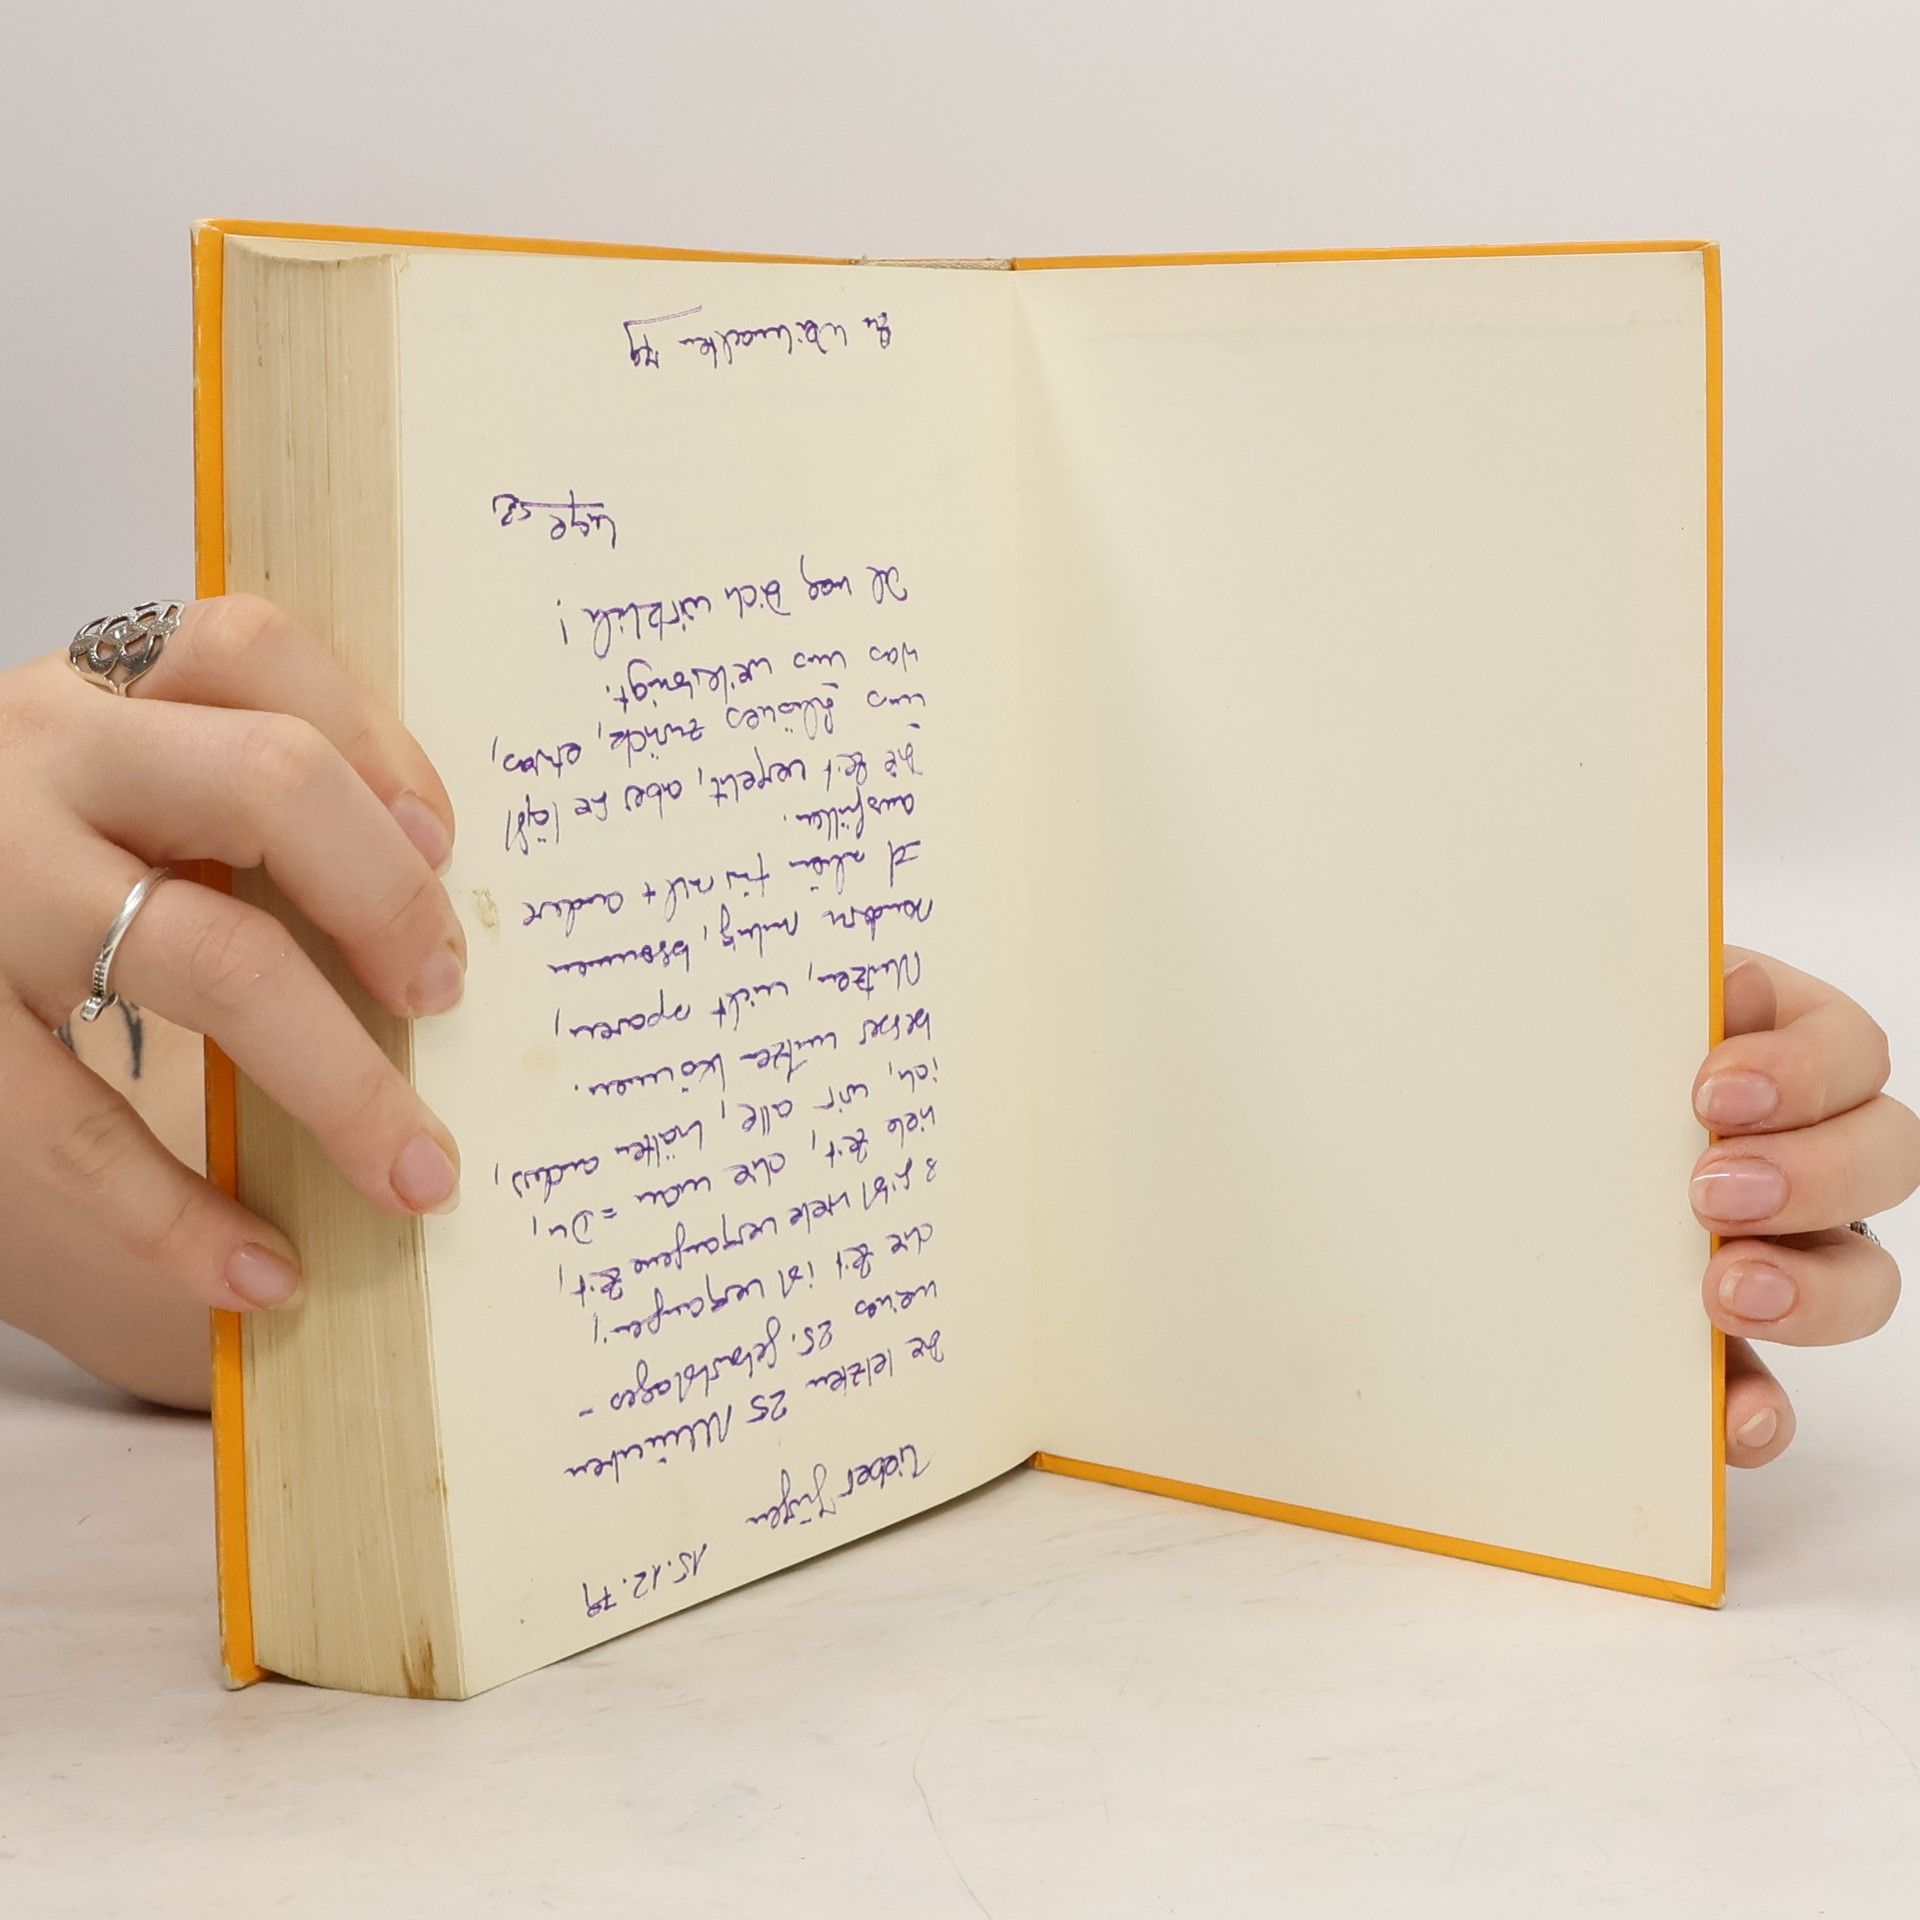 15.12.79
Lieber Jürgen
Die letzten 25 Minuten
meines 25. Geburtstages -
die Zeit ist vergangen,
es gibt viele vergangene Zeit,
viele Zeit, die man = Du,
ich, wir alle, hätten anders,
besser nutzen können.
Nutzen, nicht sparen,
sondern ruhig, besonnen
allein für sich + andere
ausfüllen.
Die Zeit vergeht, aber sie läßt
uns Schönes zurück, etwas,
was uns weiterbringt.
Ich mag Dich wirklich!
Zu Weihnachten 79